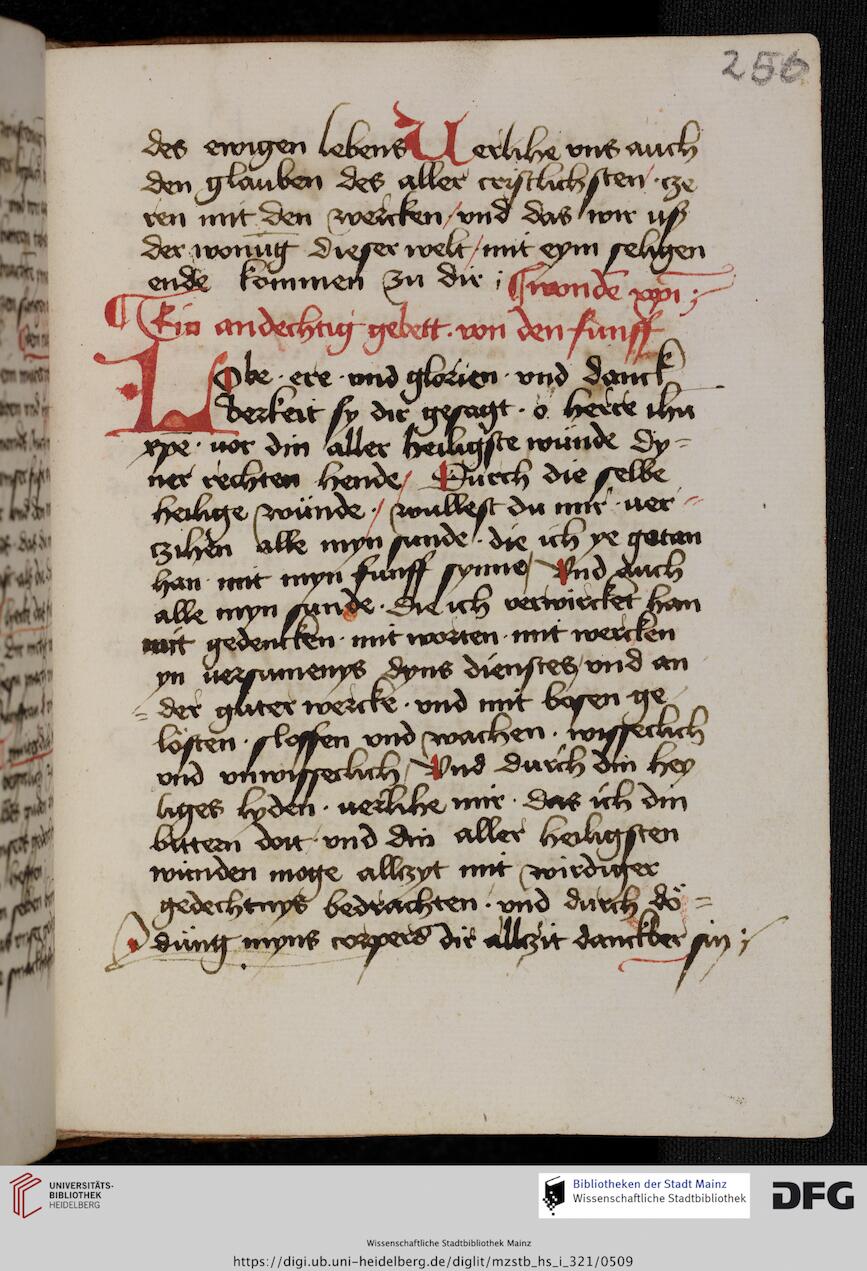 256
des ewigen lebens Verlihe vns auch
den glauben des aller cristlichsten · cze
ren mit den wercken / vnd das wir uß
der wonūg dieser welt / mit eym seligen
ende kommen zu dir ; ¶ wonden xpi ;
¶ Ein andechtig gebett · von den funff
LObe · ere · vnd glorien · vnd danck
berkeit sy dir gesagt · o herre ihu
xpe · vor din aller heiligste wunde dy=
ner rechten hende / Durch die selbe
heilige wunde · / wullest du mir · ver=
czihen alle myn sunde · die ich ye getan
han mit myn funff synne / Vnd auch
alle myn sunde · die ich verwircket han
mit gedencken · mit worten · mit wercken
yn versumenys dyns dienstes / vnd an
=der guter wercke · vnd mit bosen ge
losten · sloffen vnd wachen · wisseclich
vnd vnwisseclich / Vnd durch din hey
liges lyden · verlihe mir · das ich din
bittern dott · vnd din aller heiligsten
wunden moge allczyt mit wirdiger
gedechtnys bedrachten · vnd durch dö=
dung myns corpers dir allczit danckber sin ;
UNIVERSITÄTS-
BIBLIOTHEK
HEIDELBERG
Bibliotheken der Stadt Mainz
Wissenschaftliche Stadtbibliothek
DFG
Wissenschaftliche Stadtbibliothek Mainz
https://digi.ub.uni-heidelberg.de/diglit/mzstb_hs_i_321/0509